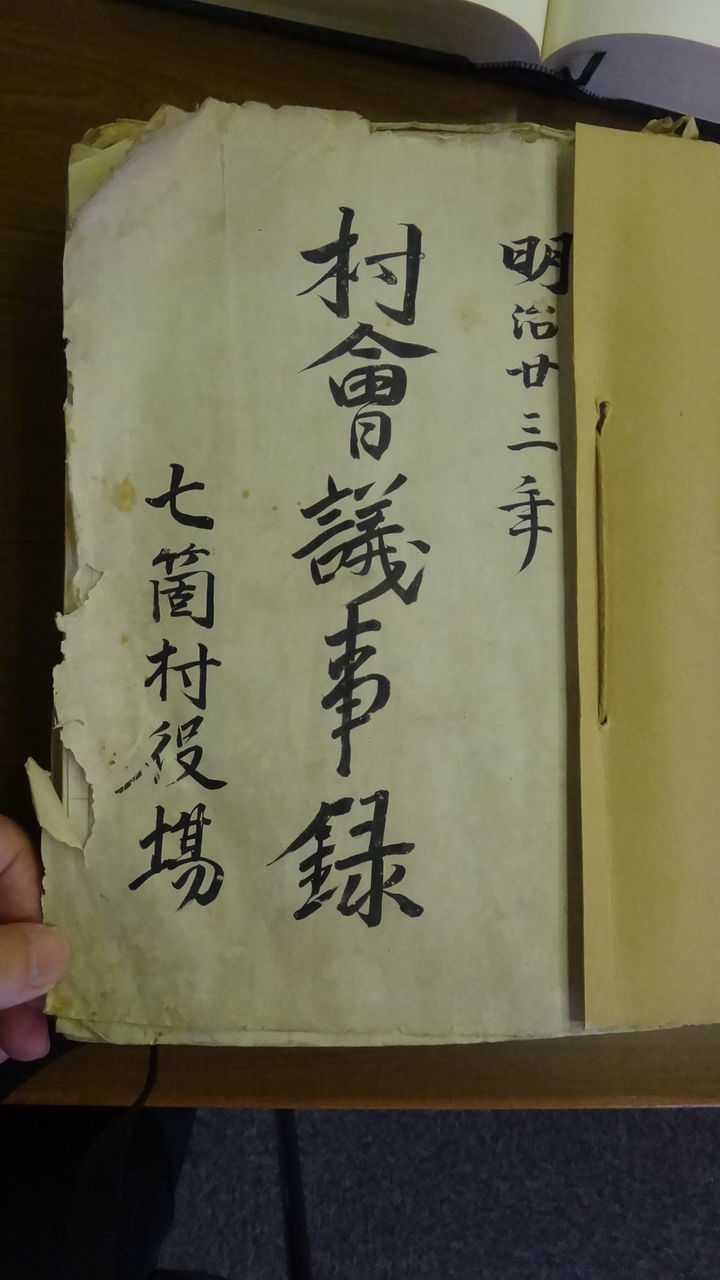 明治廿三年
村會議事録
七箇村役場